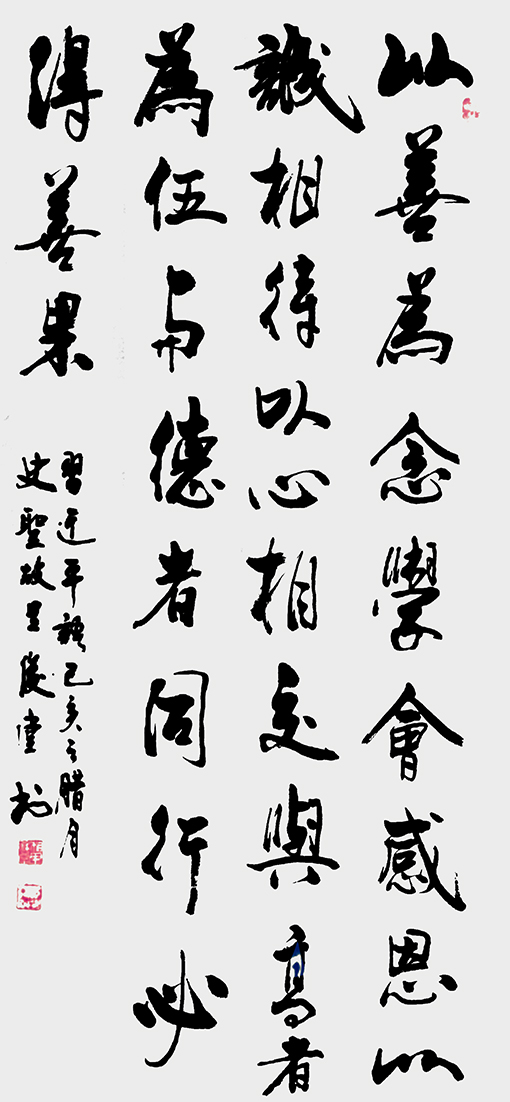 以善為念學會感恩以
誠相待以心相交與高者
為伍与德者同行必
得善果
習近平語己亥之臘月
史聖故里俊堂於